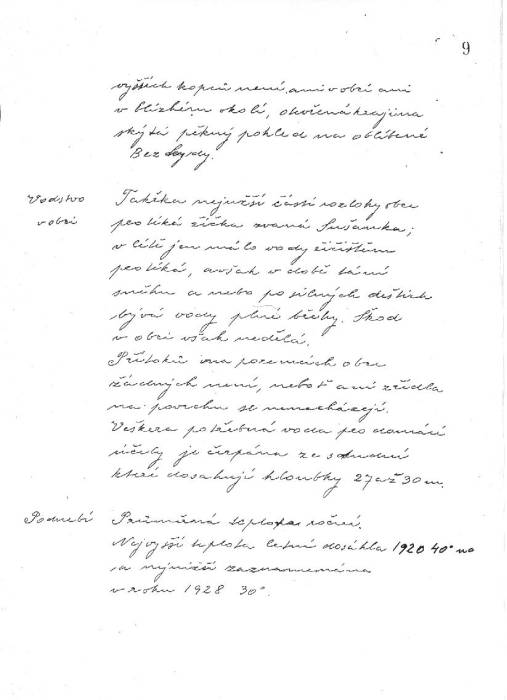 9
vyšších kopců není ani v obci ani
v blízkém okolí, otevřená krajina
skýtá pěkný pohled na oblíbené
Bezkydy.
Vodstvo
v obci
Takřka nejnižší částí rozlohy obce
protéká říčka zvaná Sušanka;
v létě jen málo vody řičištěm
protéká, avšak v době tání
sněhu a nebo po silných deštích
bývá vody plné břehy. Škod
v obci však nedělá.
Přítoků na pozemcích obce
žádných není, neboť ani zřídla
na povrchu se nenacházejí.
Veškera potřebná voda pro domácí
účely je čerpána ze studní
které dosahují hloubky 27 až 30 m.
Podnebí
Průměrná teplota roční.
Nejvyšší teplota letní dosáhla 1920 40°
a nejnižší zaznamenána
v roku 1928 30°.